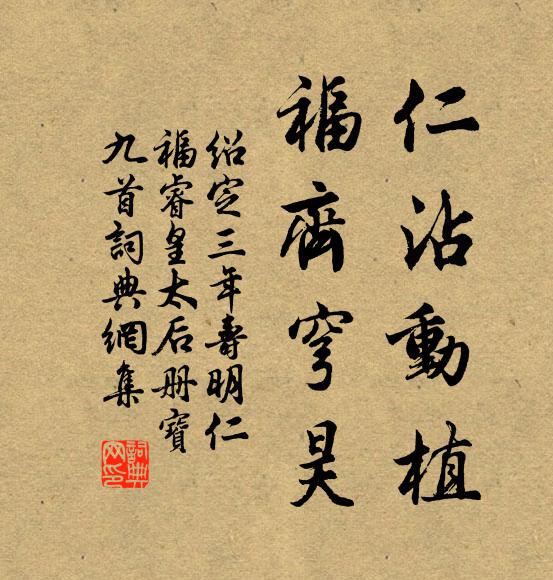 仁沾動植
福齊穹昊
紹定三年壽明仁
福睿皇太后册寶
九首詞典網集
詞典
网印